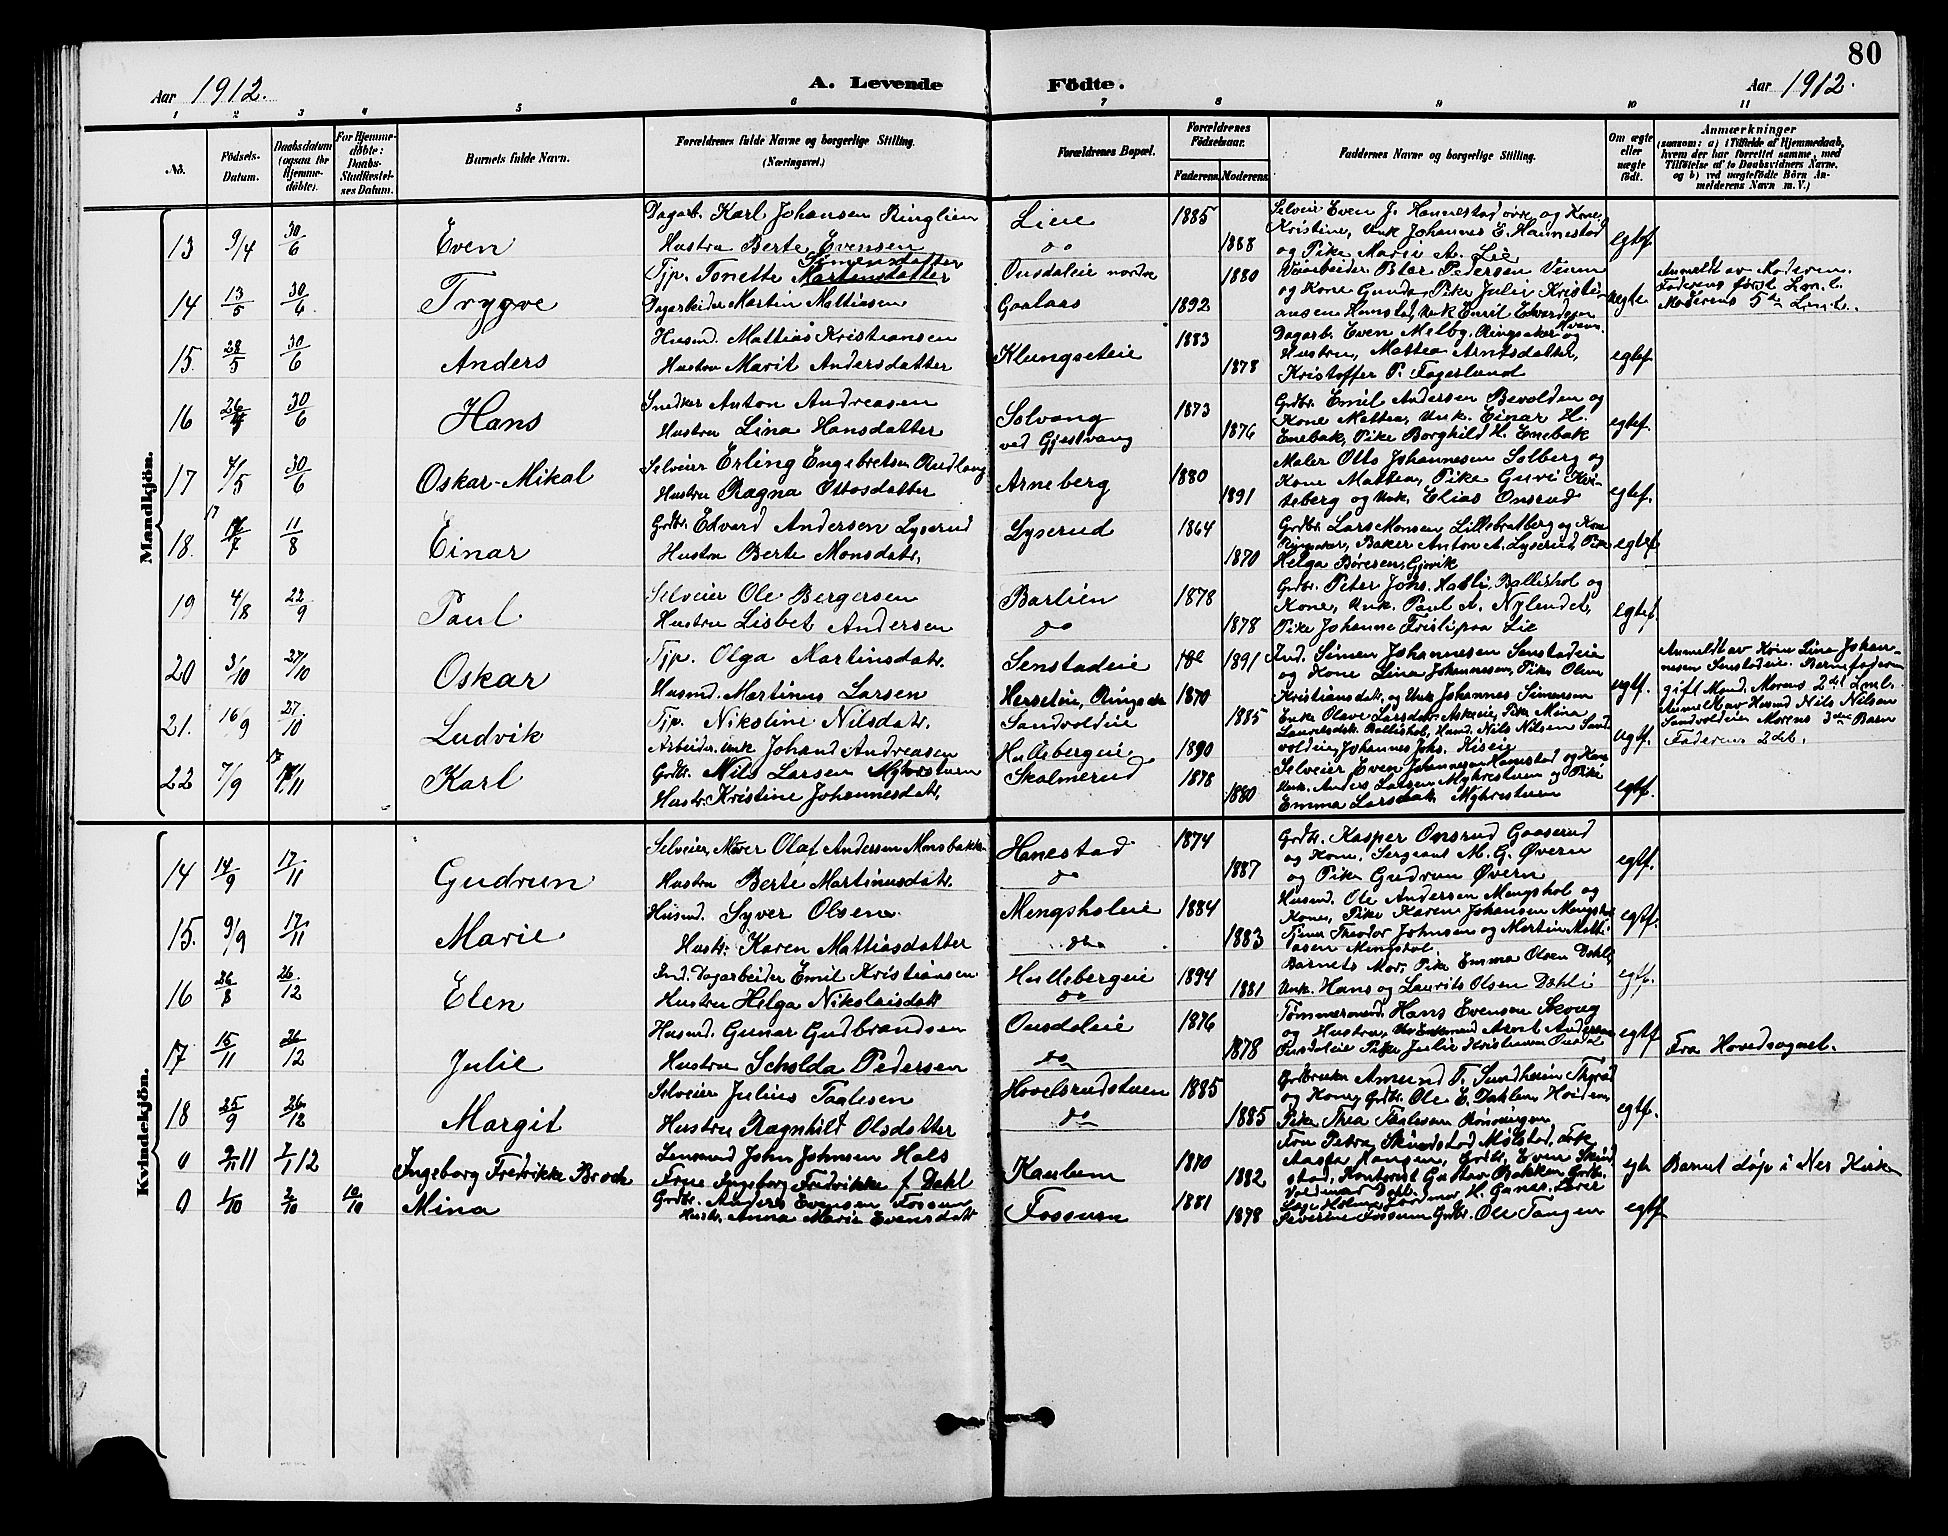 80
Aar 1912.
A. Levende Födte.
Aar 1912.
1 2 3 4 5 6 7 8 9 10 11
No.
Födsels-Datum.
Daabsdatum (ogsaa for Hjemme-döbte).
For Hjemme-döbte: Daabs-Stadfæstel-ses Datum.
Barnets fulde Navn.
Forældrenes fulde Navne og borgerlige Stilling. (Næringsvei.)
Forældrenes Bopæl.
Forældrenes Födselsaar.
Faderens. Moderens.
Faddernes Navne og borgerlige Stilling.
Om ægte eller uægte födt.
Anmærkninger
(saasom: a) i Tilfælde af Hjemmedaab, hvem der har forrettet samme, med Tilföielse af to Daabsvidners Navne, og b) ved uægtefödte Börn An-melderens Navn m. V.)
Mandkjön.
13 9/4 30/6 Even
Dagarb. Karl Johansen Ringlien
Hustru Berte Evensen
Liene do 1885 1888
Selveier Even J. Hannestad øvre og Kone
Kristine, Unk Johannes E. Hannestad
og Pike Marie A. Lie
egtef.
14 13/5 30/6 Trygve
Tjp. Tonette Martensdatter Simensdatter
Dagarbeider Martin Mattiasen
Onsdaleie nordre
Gaalaas 1892 1880
Veiarbeider Peter Pedersen
og Kone Gunda, Pike Julie Kristi-
ansen Hamstad, Unk Emil
uegte
Anmeldt av Moderen.
Faderens først L.m.l.
Moderens 5te L.m.l.
15. 28/5 30/6 Anders
Husmd. Mattias Kristiansen
Hustru Marit Andersdatter
Klungseteie 1883 1878
Dagarb. Even Melby, Ringsaker og
Hustru, Mattea Arntsdatter,
Kristoffer P. Fagerlund
egtef.
16 26/4 30/6 Hans
Snedker Anton Andreasen
Hustru Lina Hansdatter
Solvang
ved Gjestvang 1873 1876
Grdbr. Emil Andersen Bevolden og
Kone Mattea, Unk. Einar H.
Enebak, Pike Borghild H. Enebak
egtef.
17 7/5 30/6 Oskar-Mikal
Selveier Erling Engebretsen Rudlang
Hustru Ragna Ottosdatter
Arneberg 1880 1891
Maler Otto Johannesen Solberg og
Kone Mattea, Pike Guri Kvi-
teberg og Unk. Elias Onsrud
egtef.
18. 17/7 11/8 Einar
Grdbr. Edvard Andersen Lyserud
Hustru Berte Monsdatr.
Lyserud 1864 1870
Grdbr. Lars Monsen Lillebratberg og Kone
Ringsaker, Baker Anton A. Lyserud, Pike
Helga Børesen, Gjøvik
egtef.
19 4/8 22/9 Paul
Selveier Ole Bergersen
Hustru Lisbet Andersen
Bartien do 1878 1878
Grdbr. Peter Johs. Ballishol og
Kone, Unk. Paul A. Nylendet,
Pike Johanne Frislipaa Lie
egtef.
20 3/10 27/10 Oskar
Tjp. Olga Martinsdatr.
Husmd. Martinus Larsen
Senstadeie
Herseteie, Ringsaker 1870 1891
Ind. Simen Johannesen Senstadeie
og Kone Lina Johannesen, Pike Oline
Kristiansdatr. og Unk Johannes Simensen
uegtf.
Anmeldt av Kone Lina Johan-
nesen Senstadeie. Barnefaderen
gift Mand. Morens 2det L.m.l.
21. 16/9 27/10 Ludvik
Tjp. Nikoline Nilsdatr.
Arbeider, Unk Johand Andreasen
Sandvoldeie
Hullebergeie 1890 1885
Enke Olave Larsdatr. Askeie, Pike Mina
Lauritsdatr. Ballishol, Husmd. Nils Nilsen Sand-
voldeie, Johannes Johs. Kiseie
uegtf.
Anmeldt av Husmd Nils Nilsen
Sandvoldeie Morens 3die Barn
Faderens 2det.
22 7/9 17/11 Karl
Grdbr. Nils Larsen Myhrestuen
Hustr. Kristine Johannesdatr.
Skolmerud 1878 1880
Selveier Even Johannesen Hamstad og Kone
Unk. Anders Larsen Myhrestuen og Pike
Emma Larsdatr. Myhrestuen
egtf.
Kvindekjön.
14 14/9 17/11 Gudrun
Selveier, Murer Olaf Andersen Monsbakken
Hustru Berte Martinusdatr.
Hanestad do 1874 1887
Grdbr. Kasper Onsrud Gaaserud
og Kone, Sergeant M. G. Øvern
og Pike Gudrun Øvern
egtf.
15. 9/9 17/11 Marie
Husmd. Syver Olsen
Hustr. Karen Mattiasdatter
Mengsholeie do 1884 1883
Husmd. Ole Andersen Mengshol og
Kone, Pike Karen Johansen Mengshol
Tjener Theodor Johnsen og Martin Matti-
asen Mengshol.
egtf.
16 26/8 26/12 Elen
Ind. Dagarbeider Emil Kristiansen
Hustru Helga Nikolaisdatr
Hullebergeie do 1894 1881
Barnets Mor, Pike Emma Olsen Dahli,
Unk. Hans og Laurits Olsen Dahli
egtf.
17 15/11 26/12 Julie
Husmd. Gunar Gudbrandsen
Hustru Scholda Pedersen
Onsdaleie do 1876 1878
Tømmermand Hans Evensen Skoug
og Hustru, Enkemand Arnt Andersen
Onsdaleie Pike Julie Kristiansen Onsdal
egtf
Fra Hovedsognet.
18 25/9 26/12 Margit
Selveier Julius Taalesen
Hustru Ragnhild Olsdatter
Hovelsrudstuen do 1885 1885
Grdbruker Amund T. Sundheim
og Kone, Grdbr. Ole E. Dahlen,
Pike Thea Taalesen
egtf.
0 2/11 11 7/1 12 Ingeborg Fredrikke Broch
Lensmand John Johnsen Hals
Frue Ingeborg Fredrikke f. Dahl
Kaulum 1870 1882
Fru Petra Skundstad Molstad, Frk
Aasta Hansen, Grdbr. Even Skund-
stad, Kontorist Gustav Bakken Grdbr.
Valdemar Dahl.
egte
Barnet døpt i Nes Kirke
0 1/10 2/10 10/10 Mina
Grdbr. Anders Evensen Fossum
Hustr. Anna Marie Evensdatr
Fossum 1881 1878
Severine Fossum Grdbr. Ole Tangen
egtf